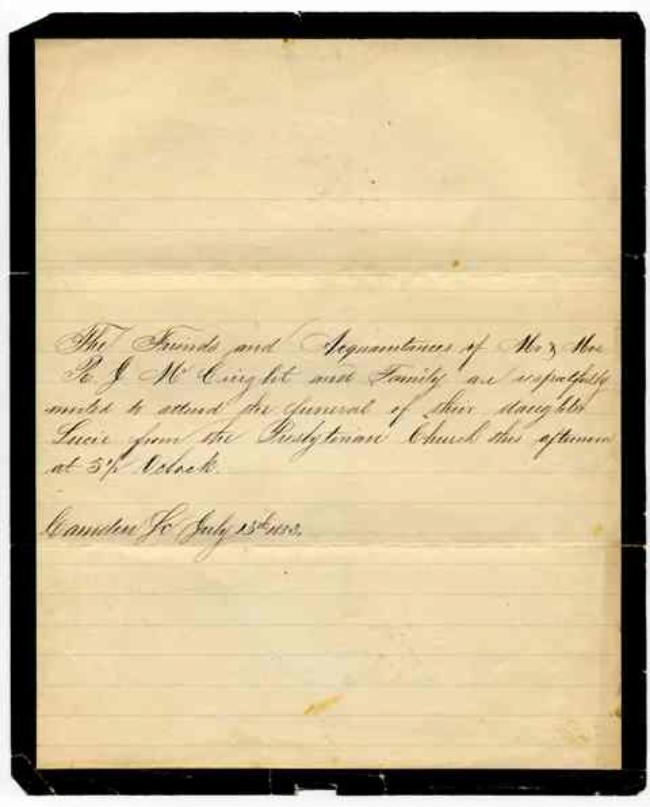 The Friends and Acquaintances of Mr & Mrs
R. J. McCreight and Family are respectfully
invited to attend the funeral of their daughter
Lucie from the Presbyterian Church this afternoon
at 5 Oclock.
Camden So July 15th